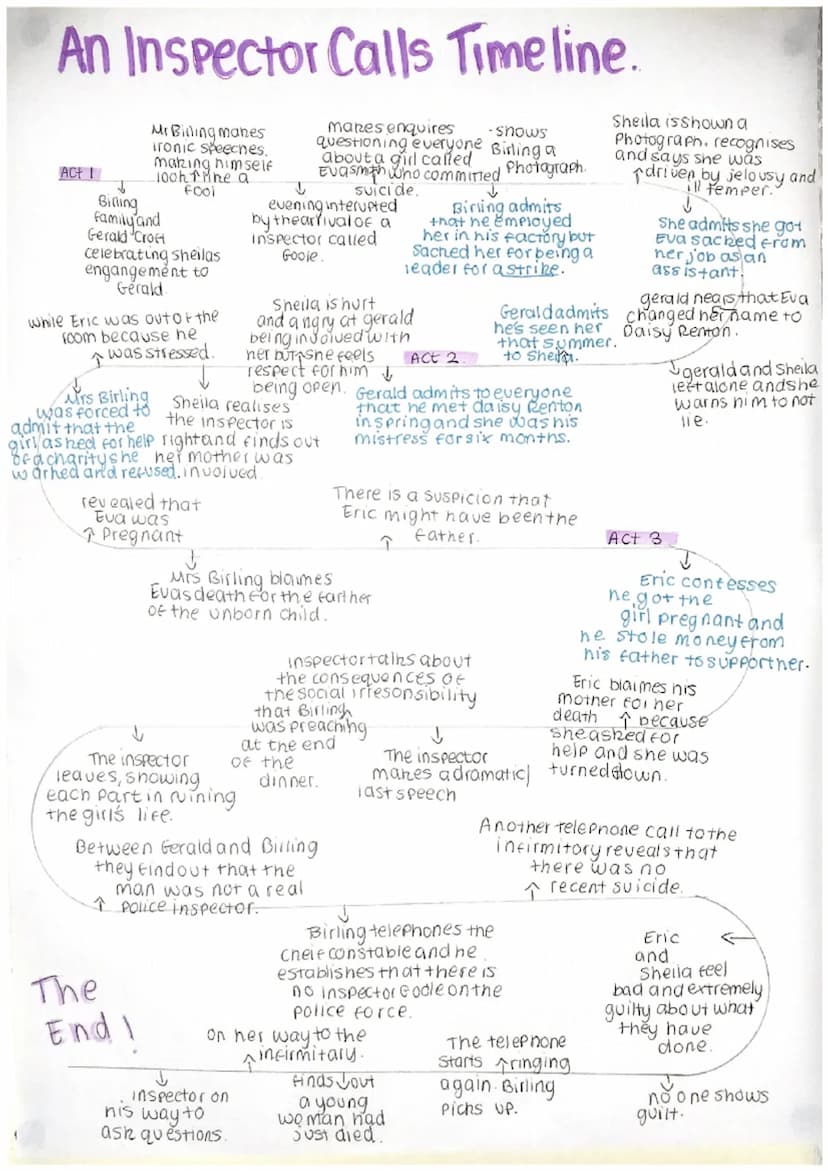 An Inspector Calls Timeline.
ACT 1
Birling
family and
Gerald Croft
celebrating sheilas
engangement to
Gerald.
Mr Birling makes
ironic speeches.
making himself
look like a
fool
evening interupted
by the arrival of a
inspector called
Goole.
makes enquires
questioning everyone
about a girl called
Eva smith who committed
suicide.
- shows
Birling a
Photograph.
Birling admits
that he employed
her in his factory but
sacked her for being a
leader for a strike.
Sheila is shown a
Photograph, recognises
and says she was
driven by jelousy and
ill temper.
She admits she got
Eva sacked from
her job as an
assistant.
gerald hears that Eva
changed her name to
Daisy Renton.
gerald and Sheila
left alone and she
warns him to not
lie.
Gerald admits
he's seen her
that summer.
to Sheila.
ACT 2.
Gerald admits to everyone
that he met daisy Renton
in spring and she was his
mistress for six months.
Sheila is hurt
and angry at gerald
being involved with
her but she feels
respect for him
being open.
Sheila realises
the inspector is
right and finds out
her mother was
involved.
while Eric was out of the
room because he
was stressed.
Mrs Birling
was forced to
admit that the
girl asked for help
of a charity she
worked and refused.
revealed that
Eva was
Pregnant
Mrs Birling blaimes
Evas death for the farther
of the unborn child.
There is a suspicion that
Eric might have been the
father.
ACT 3
Eric confesses
he got the
girl pregnant and
he stole money from
his father to support her.
Eric blaimes his
mother for her
death because
she asked for
help and she was
turned down.
The inspector
makes a dramatic
last speech
inspector talks about
the consequences of
the social irresonsibility
that Birling
was preaching
at the end
of the
dinner.
The inspector
leaves, showing
each part in ruining
the girl's life.
Between Gerald and Birling
they find out that the
man was not a real
police inspector.
Birling telephones the
cheif constable and he
establishes that there is
no inspector Goole on the
police force.
Another telephone call to the
infirmitory reveals that
there was no
recent suicide.
Eric
and
Sheila feel
bad and extremely
guilty about what
they have
done.
no one shows
guilt.
The telephone
starts ringing
again. Birling
picks up.
finds out
a young
woman had
just died.
on her way to the
infirmitary.
inspector on
his way to
ask questions.
The
End!